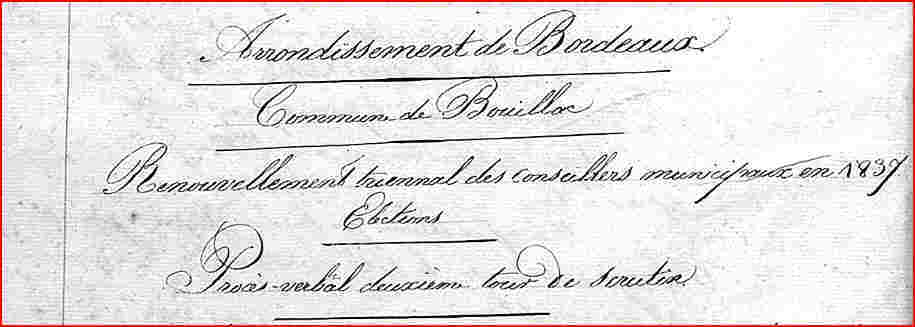 Arrondissement de Bordeaux.
Commune de Bouillac
Renouvellement triennal des conseillers municipaux en 1837
Elections
Procès-verbal deuxième tour de scrutin